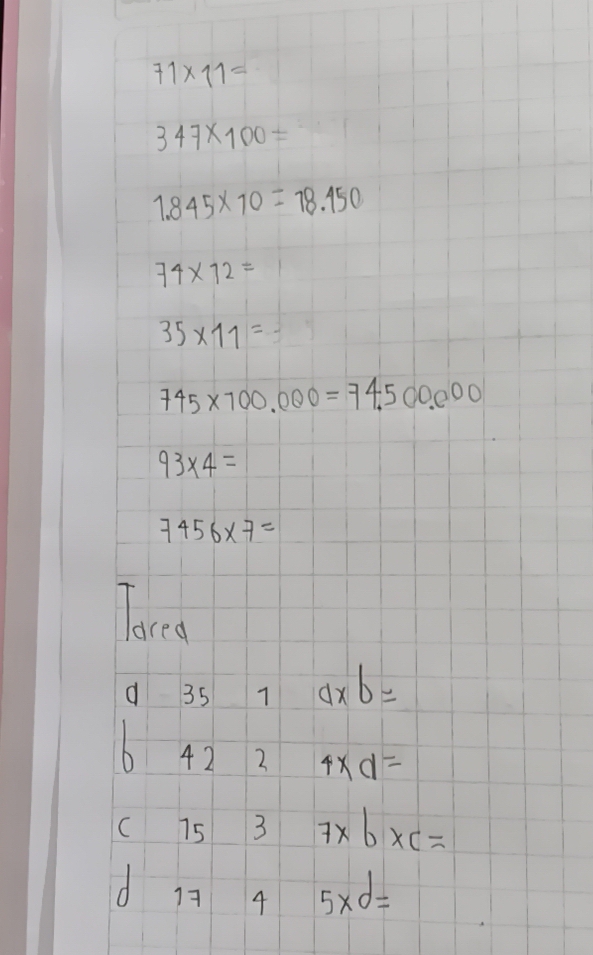 71×11=
347×100=
1.845×10=18.450
74×12=
35×11=
745×100.000=74.500.000
93×4=
7456×7=
Tarea
a 35 1 a×b=
b 42 2 4×a=
c 15 3 7×b×c=
d 17 4 5×d=